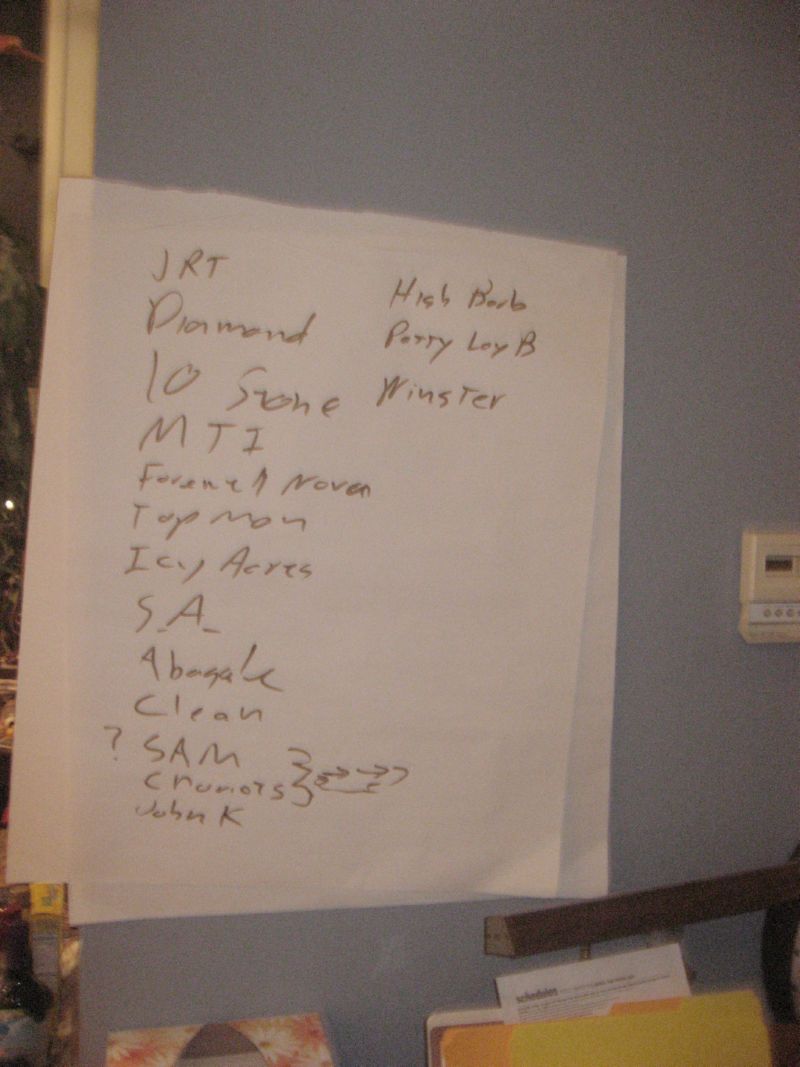 JRT
Diamond
10 Stone
MTI
Nova
Top Man
Icy Acres
S_A_
Abagale
Clean
? SAM
John K
High Barb
Patty Lay B
Winster
schedules